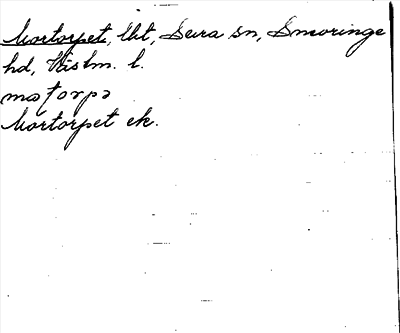 Mortorpet, lht, Sevra sn, Snevringe
hd, Västm. l.
motorpə
Mortorpet ek.